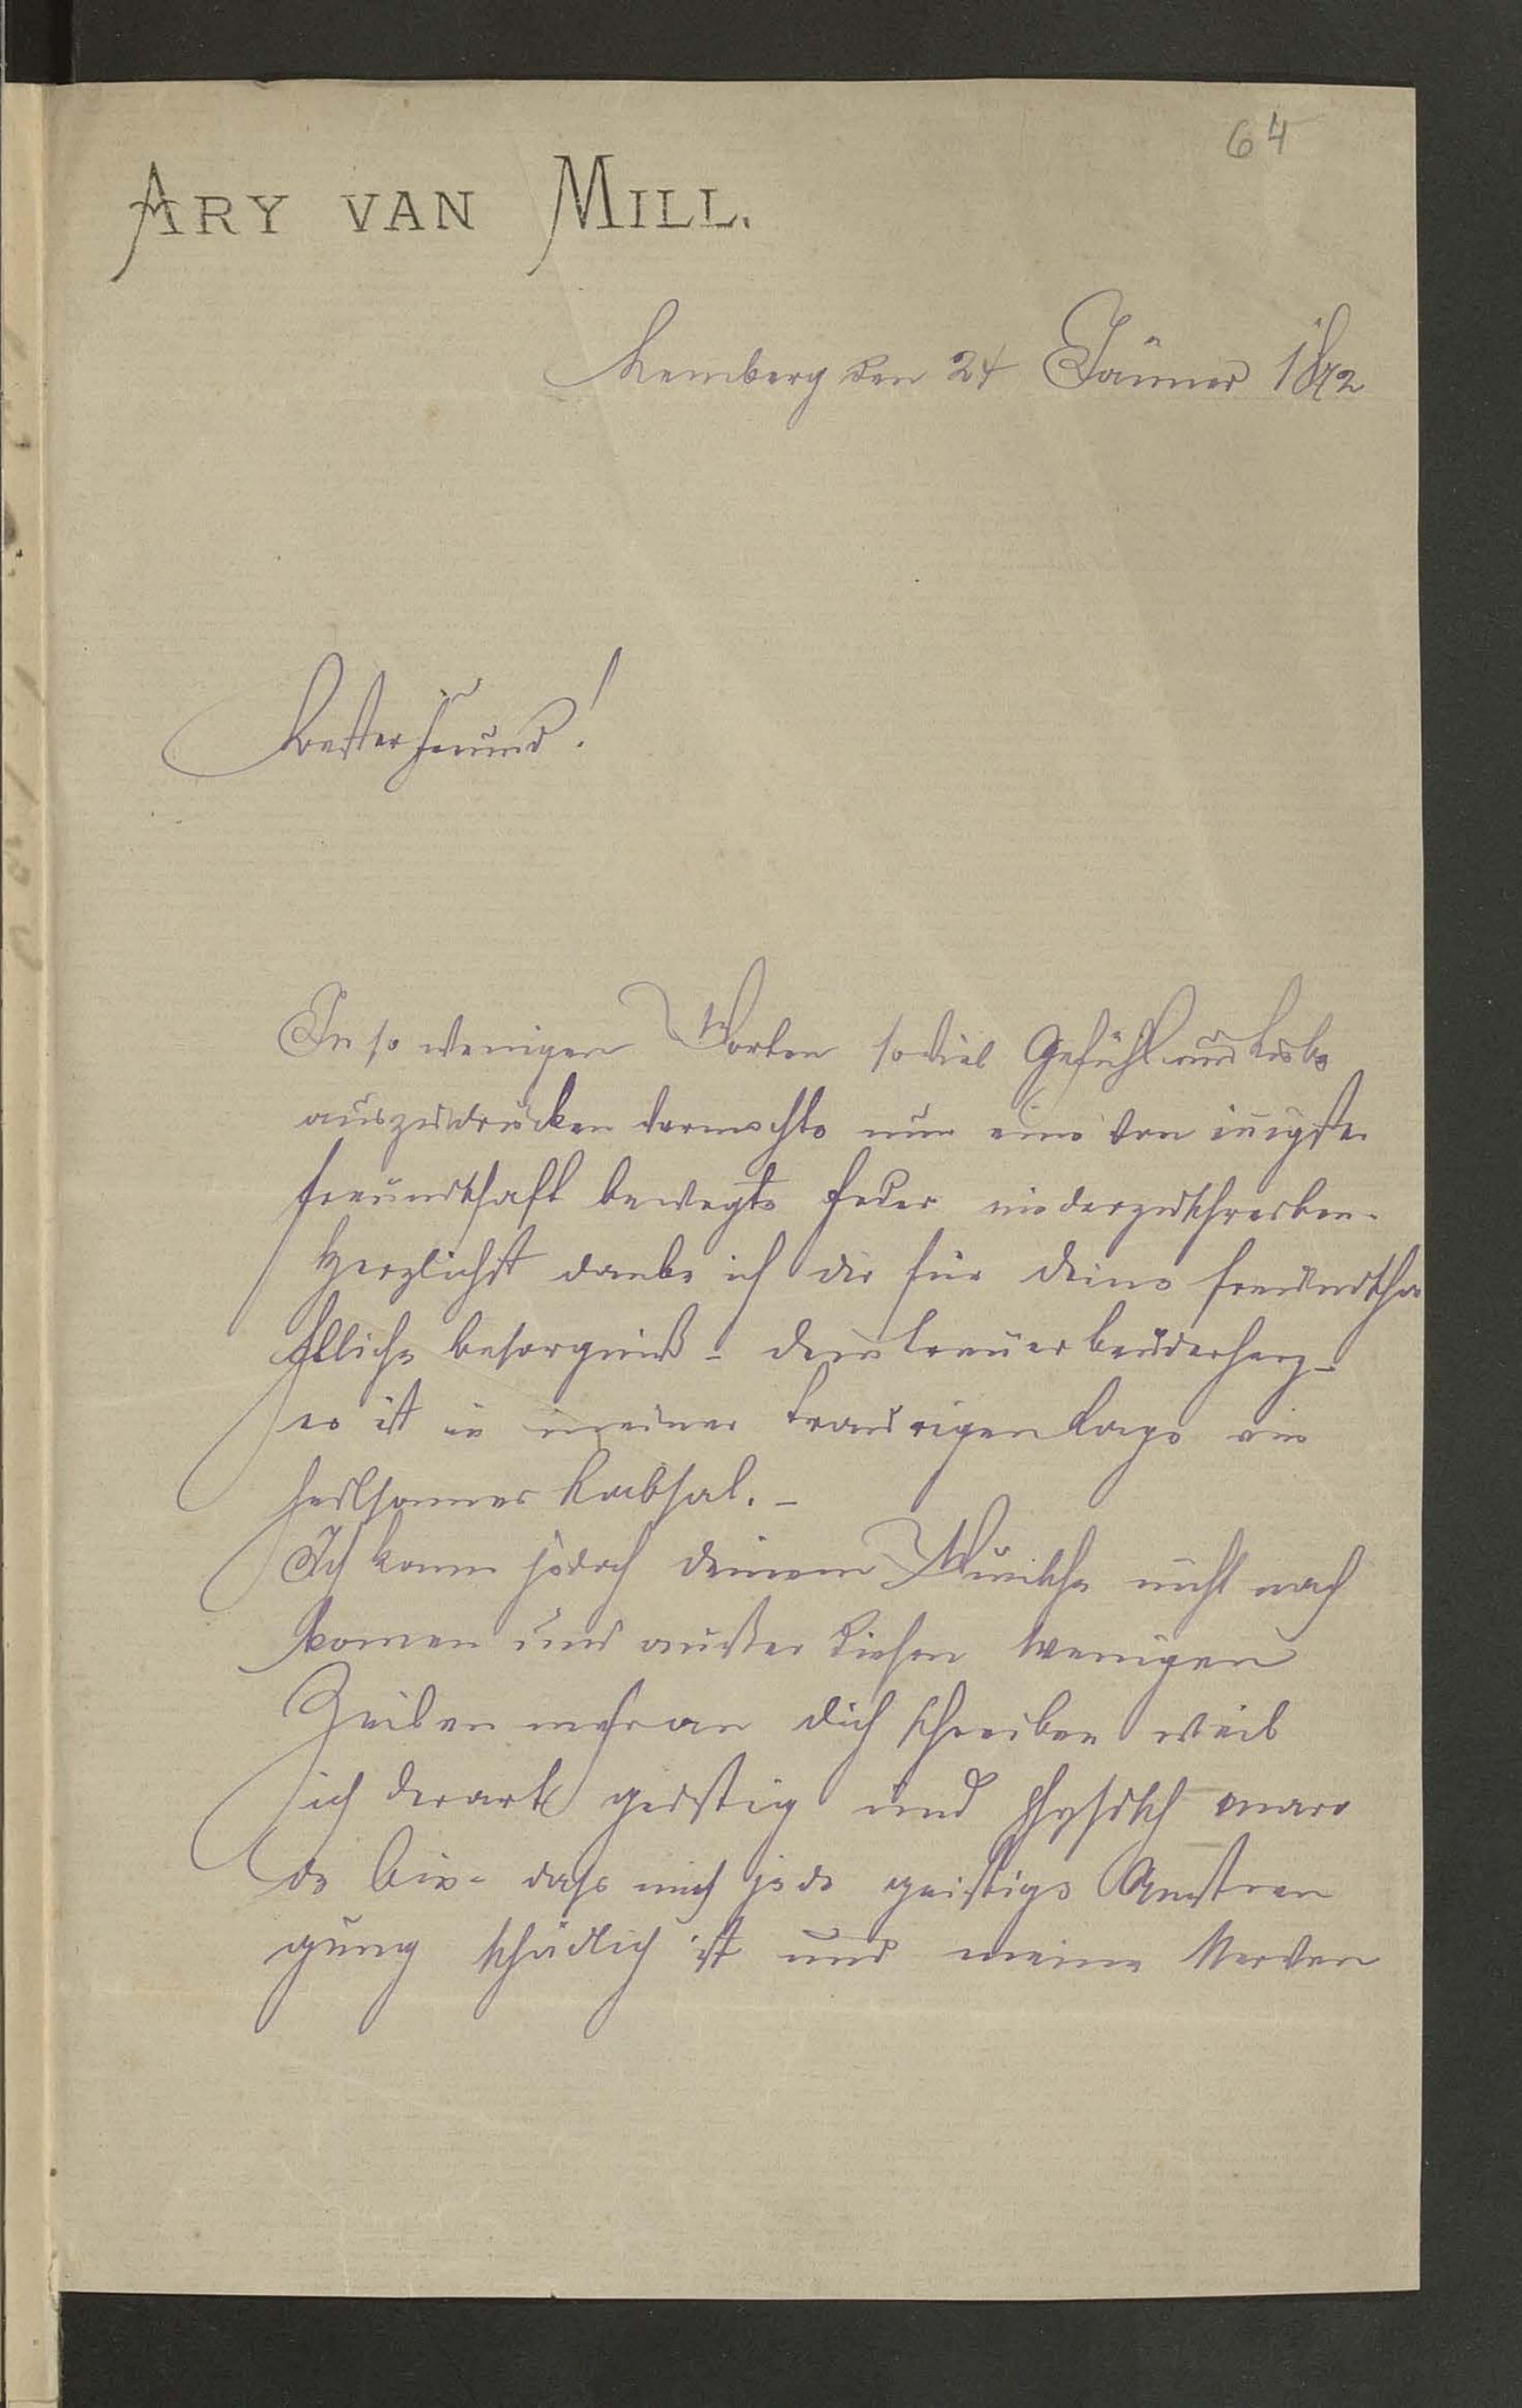 64
ARY VAN MILL.
Lemberg den 24 Jänner 1872
Bester Freund!
In so wenigen Worten soviel Gefühl und Liebe
auszudrücken vermochte nur eine von inigster
Freundschaft bewegte Feder niederzuschreiben.
Herzlichst danke ich dir für deine freundscha
ftliche besorgniß - dein treuer bruderherz -
es ist in meiner traurigen Lage ein
heilsames Labsal. -
Ich kann jedoch deinem Wunsche nicht nach
komen und außer diesen wenigen
Zeilen mehr an dich schreiben weil
ich derart geistig und physisch maro
de bin - dass mich jede geistige Anstren
gung schädlich ist und meine Nerven